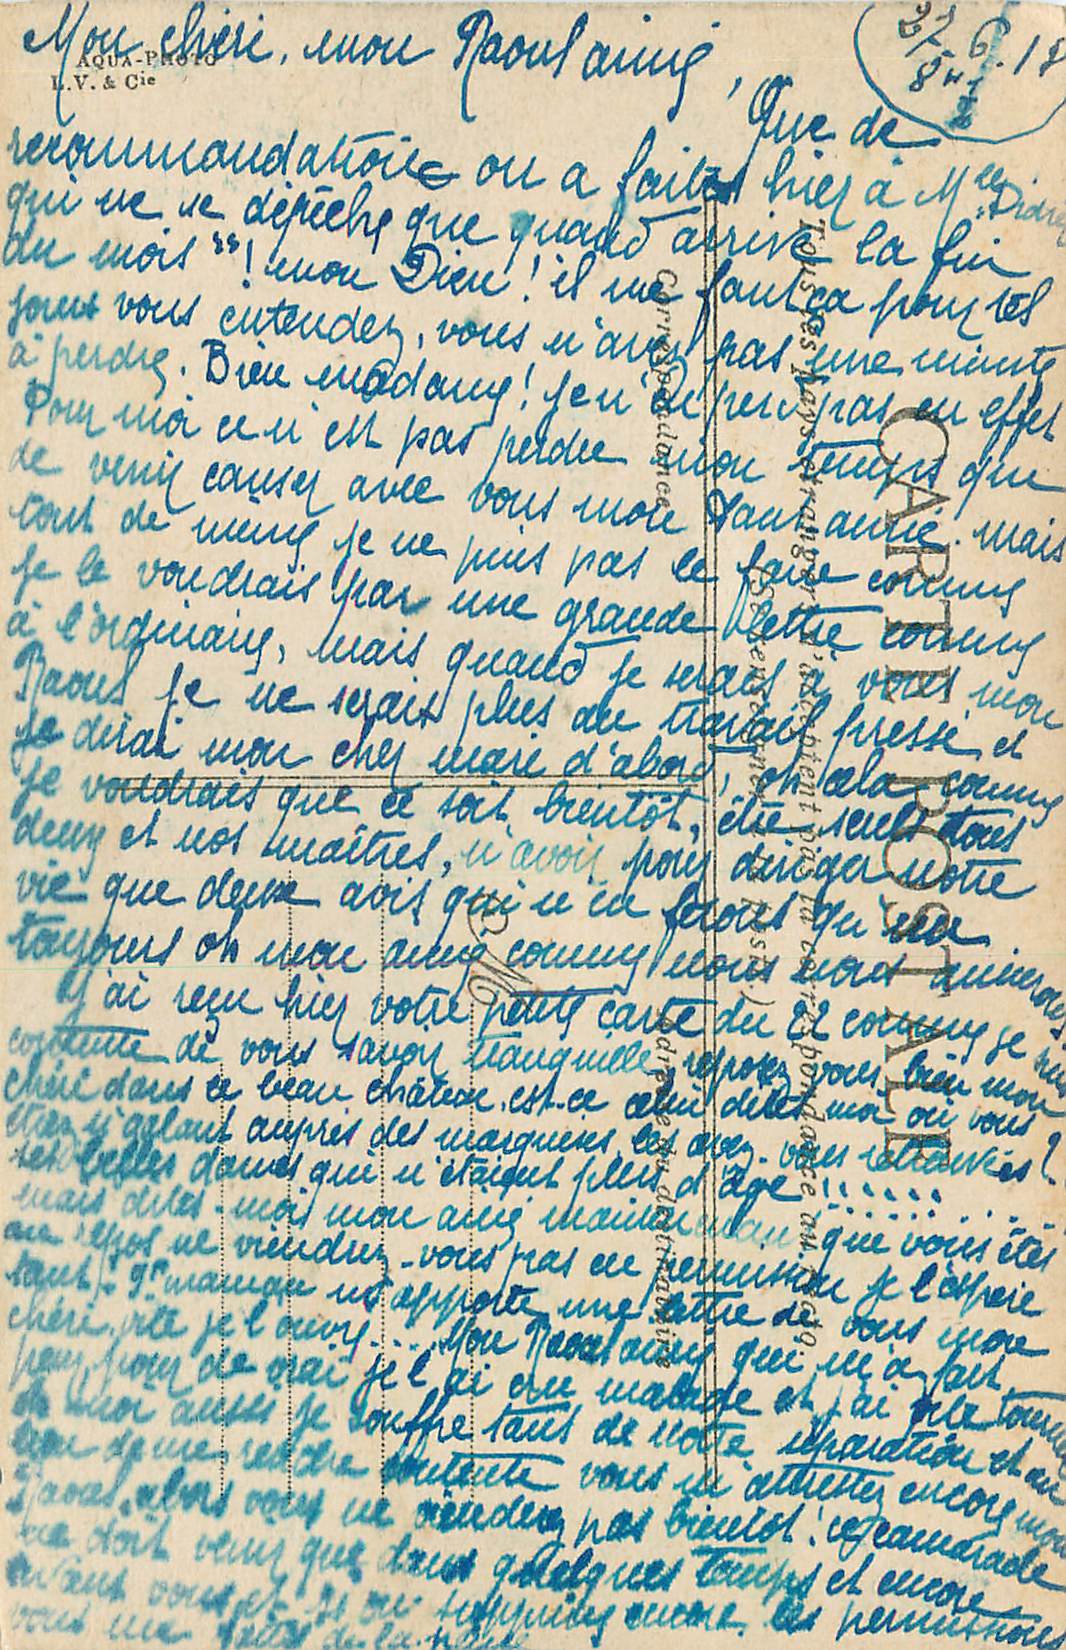 27 6.18
8 H
Mon chéri, mon Raoul aimé,
AQUA-PHOTO
L.V. & Cie
Que de
recommandations on a faites hier à Mlle
qui ne se dépêche que quand arrive la fin
du mois "! mon Dieu! il me faut ça pour tel
jour vous entendez, vous n'avez pas une minute
à perdre. Bien madame! je n'ai pas en effet
Pour moi ce n'est pas perdre mon temps que
de venir causer avec vous mon aimé. mais
tout de même je ne puis pas le faire comme
je le voudrais par une grande lettre comme
à l'ordinaire, mais quand je serai à vous mon
Raoul je ne serais plus au travail pressé, et
je dirai mon cher mari d'abord, oh cela comme
je voudrais que ce soit bientôt, être seuls tous
deux et nos maîtres, n'avoir pour diriger notre
vie que deux avis qui n'en feront qu'un
toujours oh mon aimé comme nous nous aimerons.
J'ai reçu hier votre petite carte du 22 comme je suis
contente de vous savoir tranquille, reposez vous bien mon
chéri dans ce beau château. est-ce celui dites moi où vous
étiez si galant auprès des marquises, les avez-vous retrouvées?
ses belles dames qui n'étaient plus d'âge !!......
mais dites-moi mon aimé maintenant que vous êtes
au repos ne viendrez-vous pas en permission je l'espère
tant. Gd maman m'apporte une lettre de vous mon
chéri. vite je l'ouvre.... Mon Raoul aimé qui m'a fait
peur pour de vrai je l'ai cru malade et j'ai
moi aussi je souffre tant de notre séparation et au
lieu de me rendre contente vous m'attristez encore mon
Raoul, alors vous ne viendrez pas bientôt! ce camarade
ne doit venir que dans quelques temps et encore
avant vous et si on supprime encore les permissions
vous me de la peine
CARTE POSTALE
Tous les pays étrangers n'acceptent pas la correspondance au recto
(Se renseigner à la Poste.)
Correspondance
Adresse du destinataire
M